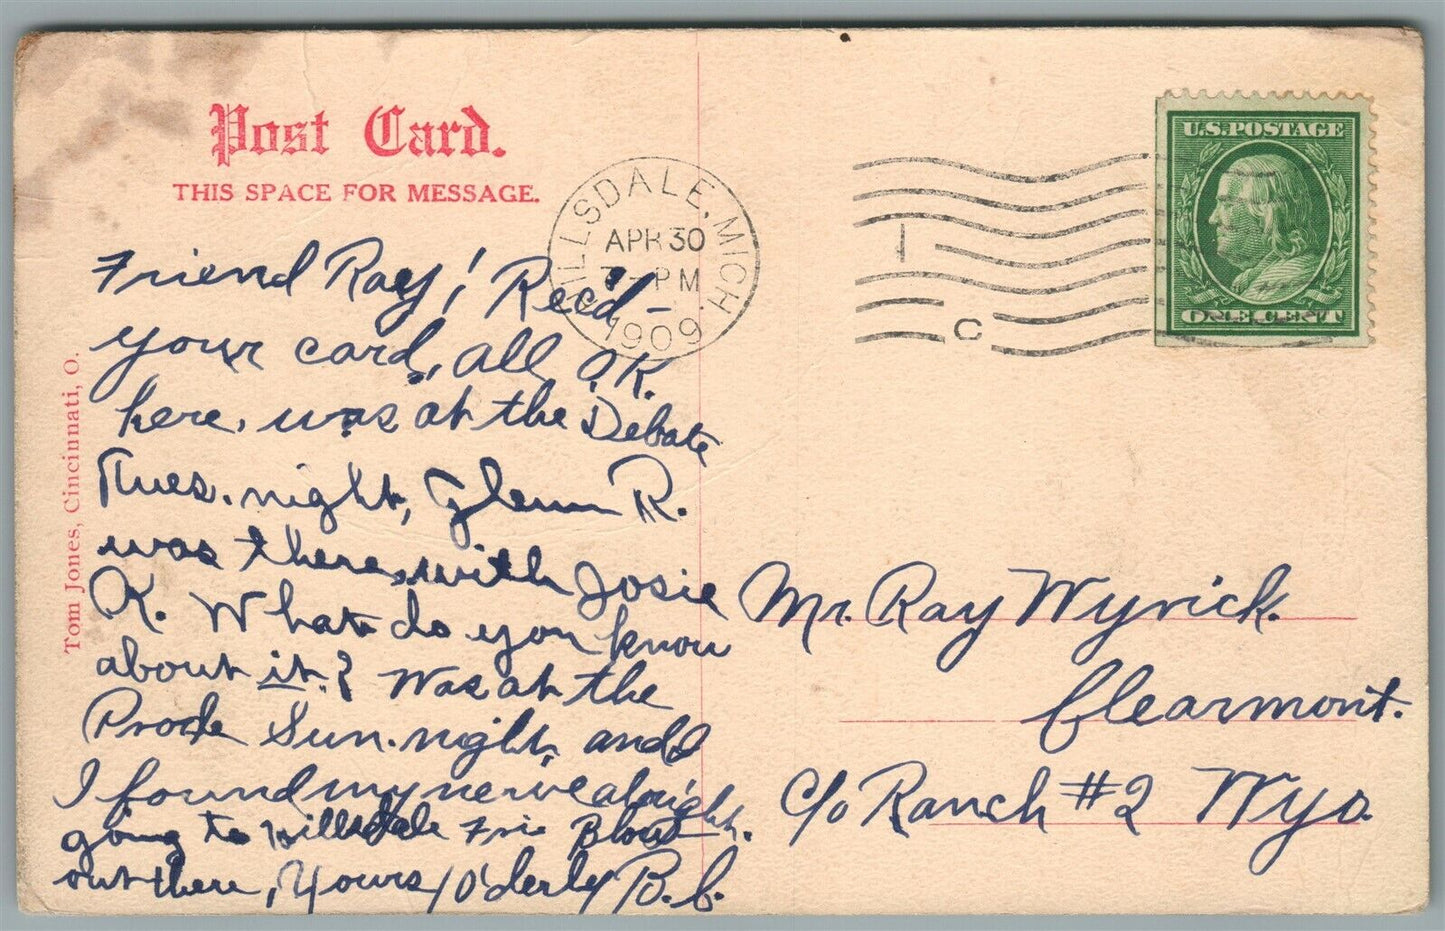 Post Card.
THIS SPACE FOR MESSAGE.
Tom Jones, Cincinnati, O.
HILLSDALE, MICH.
APR 30
PM
1909
U.S. POSTAGE
ONE CENT
C
Friend Ray! Rec'd
your card, all O.K.
here, was at the Debate
Tues. night, Glenn R.
was there, with Josie
K. What do you know
about it? Was at the
Sun. night, and
I found my nerve alright.
going to Hillsdale Fri
out there, Yours, O'derly B.C.
Mr. Ray Wyrick.
Clearmont.
c/o Ranch #2 Wyo.